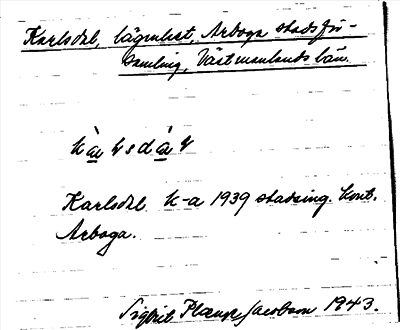 Karlsdal, lägenhet, Arboga stadsför-
samling, Västmanlands län.
Karlsdal k-a 1939 stadsing. kont.
Arboga.
Sigfrid Jacobson 1943.